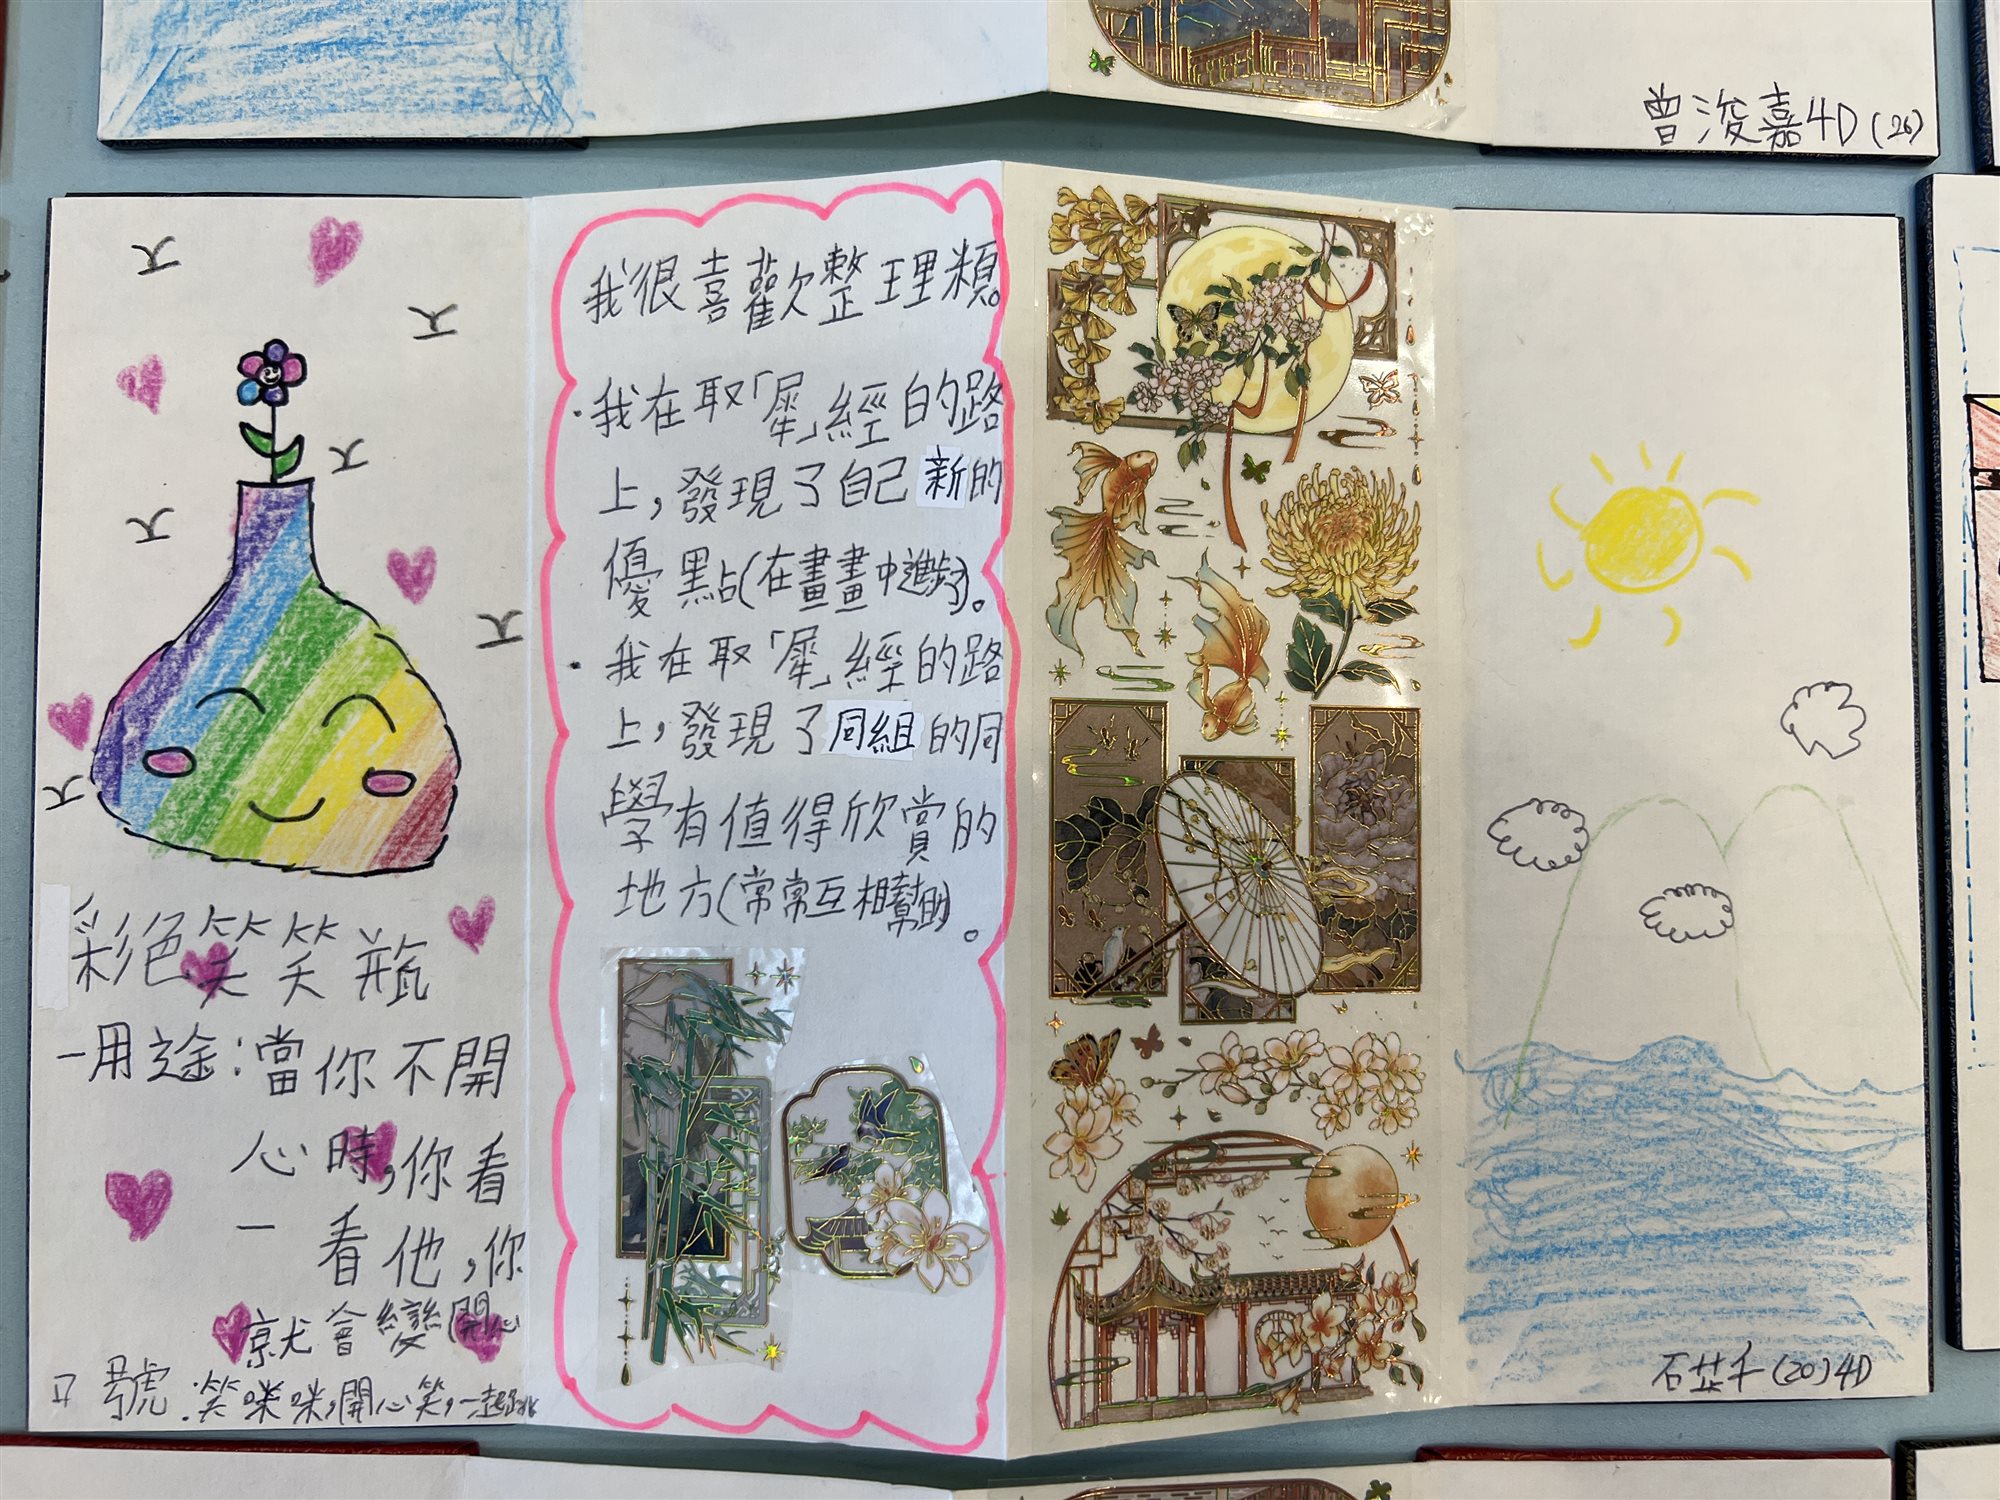 曾浚嘉4D(26)
彩色笑笑瓶
一用途:當你不開
心時,你看
一看他,你
就會變開心
口號:笑咪咪,開心笑,一起跳
我很喜歡整理類。
·我在取「犀」經的路
上,發現了自己新的
優點(在畫畫中進步了)。
·我在取「犀」經的路
上,發現了同組的同
學有值得欣賞的
地方(常常互相幫助)。
石芷千(20)4D